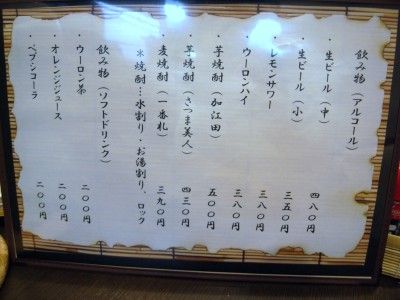 飲み物（アルコール）
・生ビール（中） 四八〇円
・生ビール（小） 三五〇円
・レモンサワー 三八〇円
・ウーロンハイ 三八〇円
・芋焼酎（加江田） 五〇〇円
・芋焼酎（さつま美人） 四三〇円
・麦焼酎（一番札） 三九〇円
＊焼酎…水割り、お湯割り、ロック
飲み物（ソフトドリンク）
・ウーロン茶 二〇〇円
・オレンジジュース 二〇〇円
・ペプシコーラ 二〇〇円